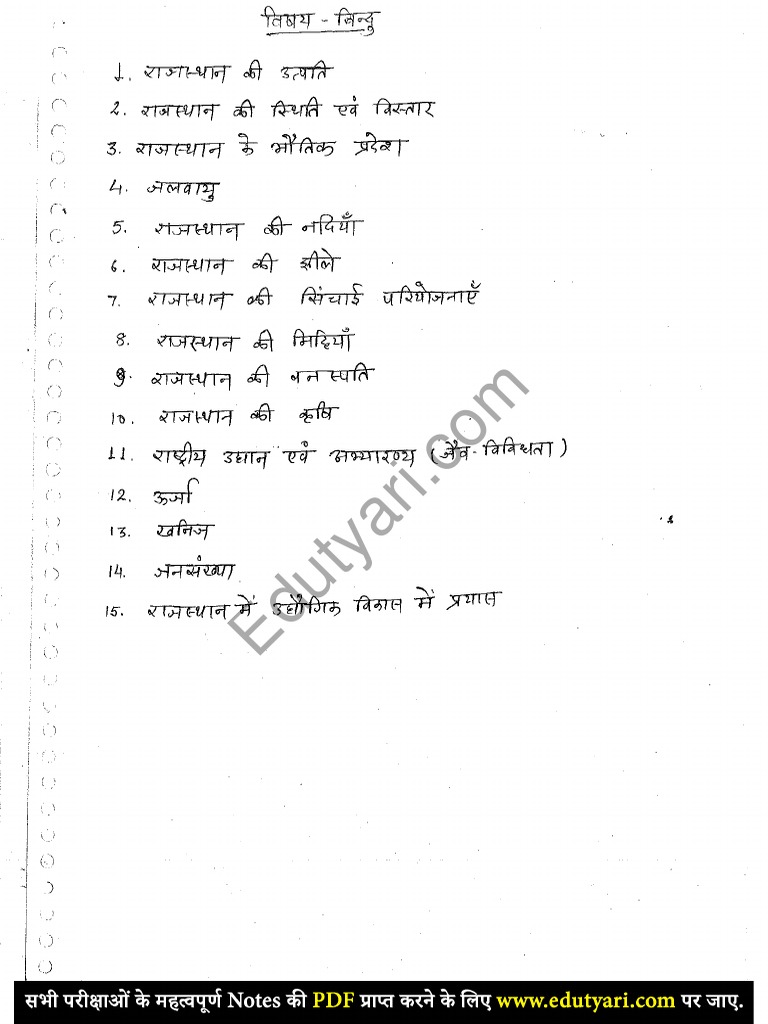 विषय - बिन्दु
1. राजस्थान की उत्पति
2. राजस्थान की स्थिति एवं विस्तार
3. राजस्थान के भौतिक प्रदेश
4. जलवायु
5. राजस्थान की नदियाँ
6. राजस्थान की झीले
7. राजस्थान की सिंचाई परियोजनाएँ
8. राजस्थान की मिट्टियाँ
9. राजस्थान की वनस्पति
10. राजस्थान की कृषि
11. राष्ट्रीय उद्यान एवं अभ्यारण्य (जैव-विविधता)
12. ऊर्जा
13. खनिज
14. जनसंख्या
15. राजस्थान में उद्यौगिक विकास में प्रयास
Edutyari.com
सभी परीक्षाओं के महत्वपूर्ण Notes की PDF प्राप्त करने के लिए www.edutyari.com पर जाए.